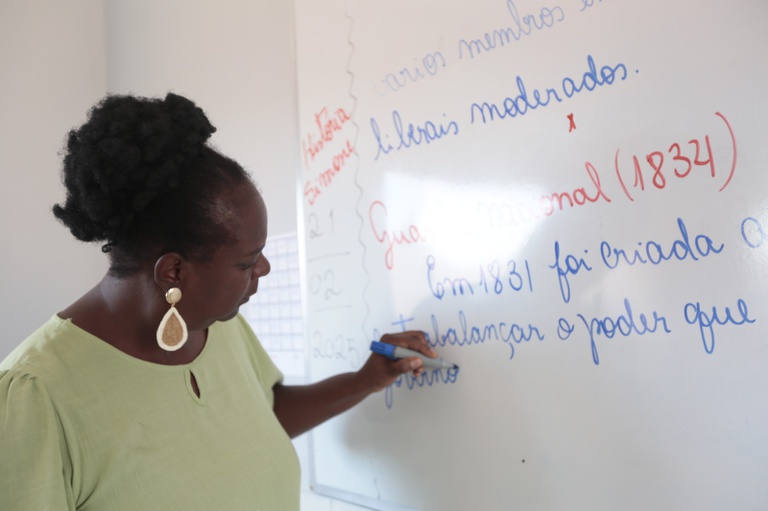 História
Simone
21
02
2025
varios membros
liberais moderados.
x
nacional (1834)
Em 1831 foi criada a
poder que
governo